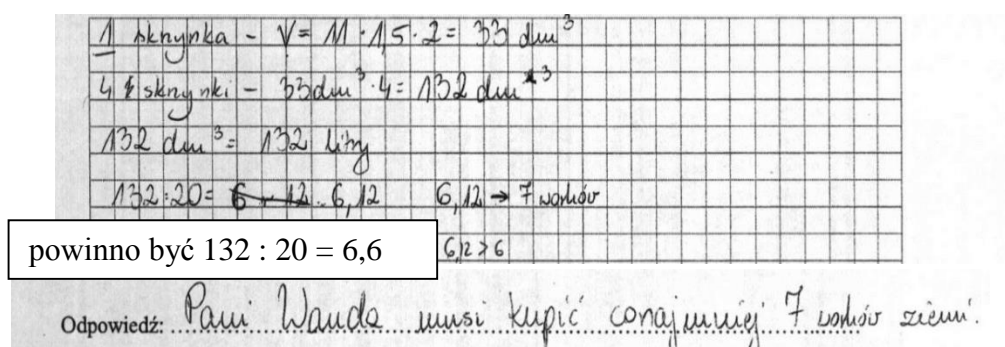 1 skrzynka - V = 11 · 1,5 · 2 = 33 dm³
4 skrzynki - 33 dm³ · 4 = 132 dm³
132 dm³ = 132 litry
132 : 20 = 6 12 6,12 6,12 → 7 worków
powinno być 132 : 20 = 6,6 6,12 > 6
Odpowiedź: Pani Wanda musi kupić conajmniej 7 worków ziemi.